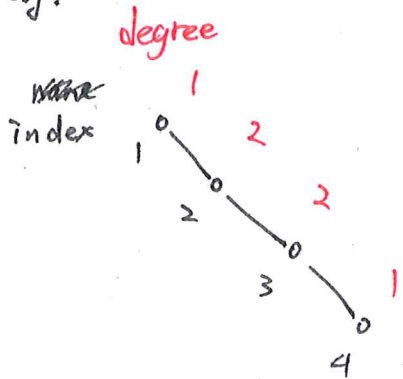 degree
1
index
1
2
2
2
3
1
4